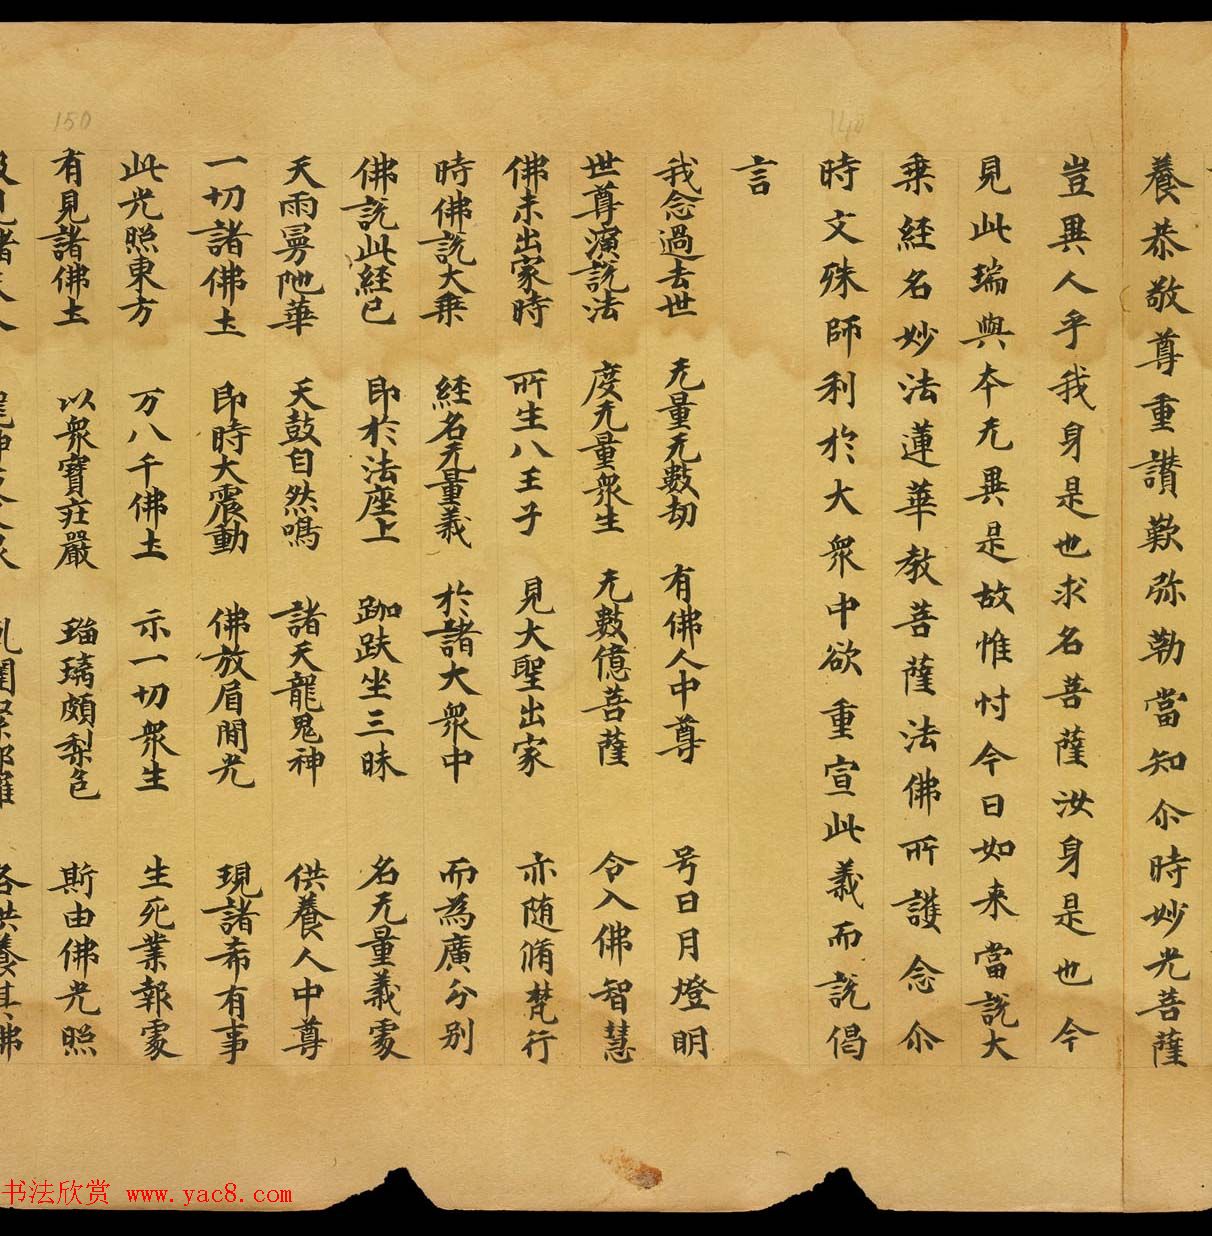 養恭敬尊重讃歎弥勒當知尒時妙光菩薩
豈異人乎我身是也求名菩薩汝身是也今
見此瑞與本无異是故惟忖今日如来當說大
乗経名妙法蓮華教菩薩法佛所護念尒
時文殊師利於大衆中欲重宣此義而說偈
言
我念過去世 无量无數劫 有佛人中尊 号日月燈明
世尊演說法 度无量衆生 无數億菩薩 令入佛智慧
佛未出家時 所生八王子 見大聖出家 亦随脩梵行
時佛說大乗 経名无量義 於諸大衆中 而為廣分别
佛說此経已 即於法座上 跏趺坐三昧 名无量義處
天雨曼陁華 天鼓自然鳴 諸天龍鬼神 供養人中尊
一切諸佛土 即時大震動 佛放眉間光 現諸希有事
此光照東方 万八千佛土 示一切衆生 生死業報處
有見諸佛土 以衆寶莊嚴 瑠璃頗梨色 斯由佛光照
150
140
书法欣赏 www.yac8.com